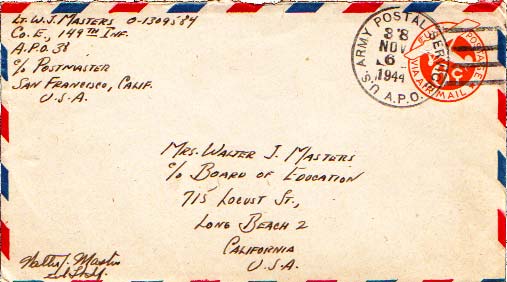 Lt. W. J. Masters O-1309584
Co. E., 149TH Inf.
A.P.O. 38
c/o Postmaster
San Francisco, Calif.
U.S.A.
U.S. ARMY POSTAL SERVICE
38
NOV
6
1944
A.P.O.
POSTAGE
VIA AIR MAIL
Mrs. Walter J. Masters
c/o Board of Education
715 Locust St.,
Long Beach 2
California
U.S.A.
Walter J. Masters